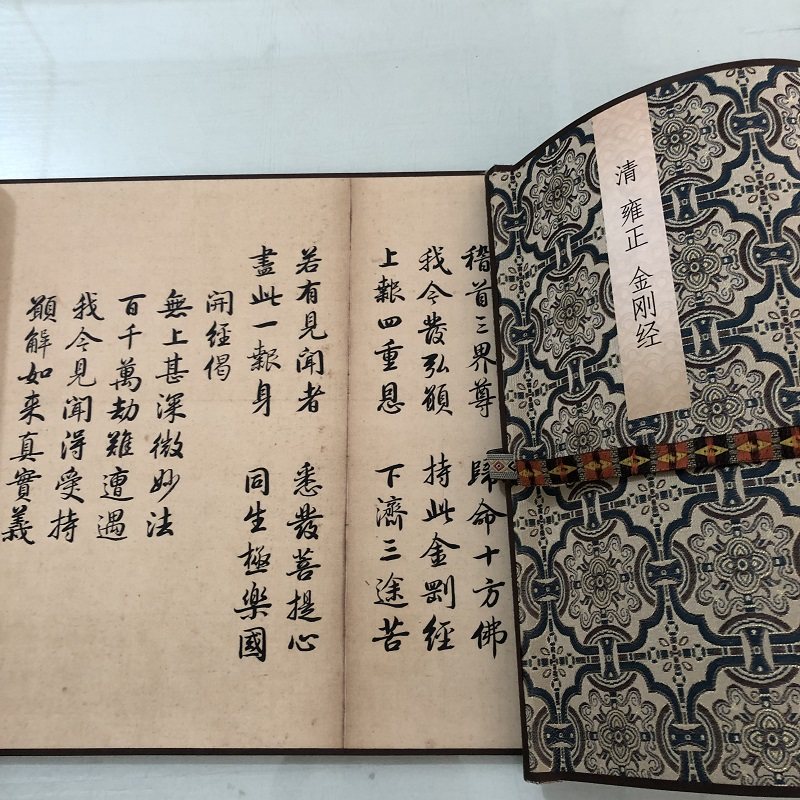 清 雍正 金刚经
稽首三界尊 歸命十方佛
我今發弘願 持此金剛經
上報四重恩 下濟三途苦
若有見聞者 悉發菩提心
盡此一報身 同生極樂國
開經偈
無上甚深微妙法
百千萬劫難遭遇
我今見聞得受持
願解如来真實義